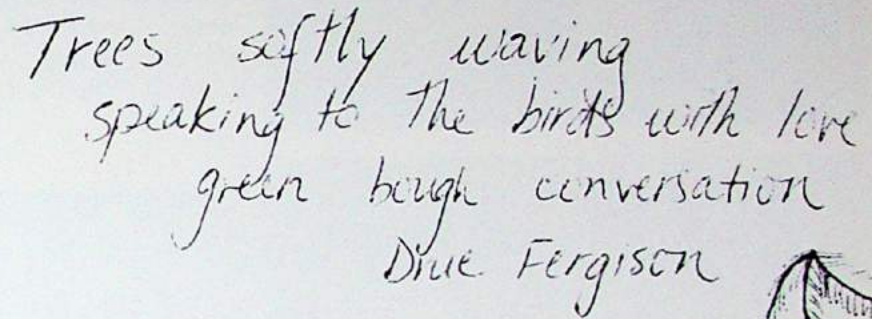 Trees softly waving
speaking to the birds with love
green bough conversation
Drue Fergison